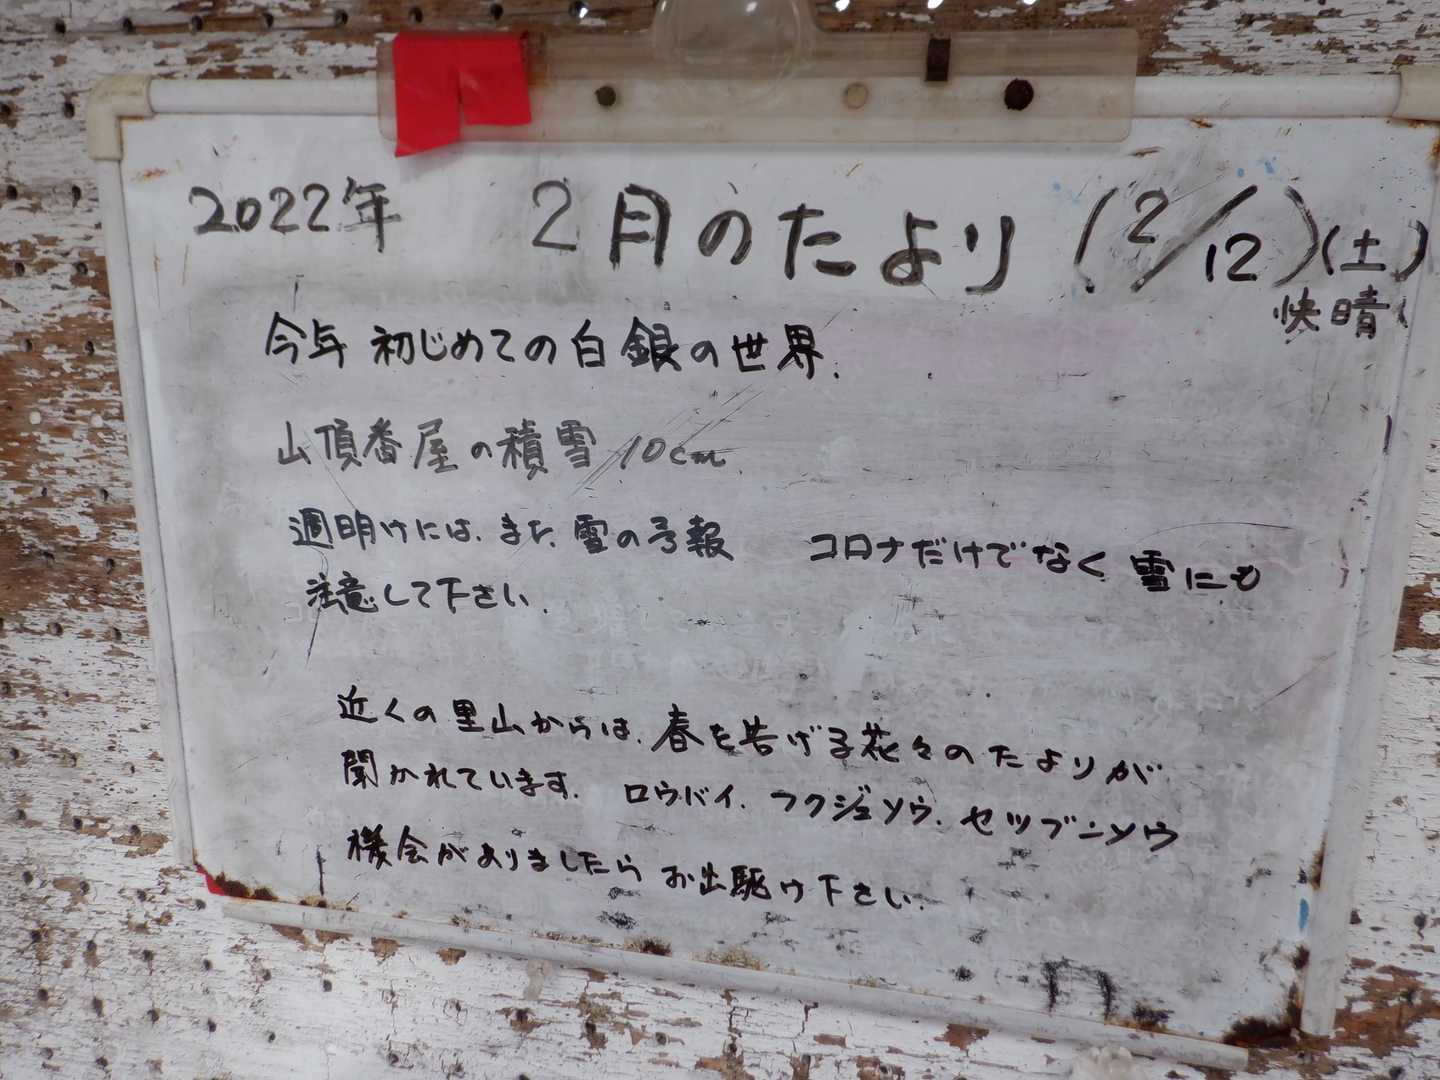 2022年 2月のたより (2/12)(土)
快晴
今年 初じめての白銀の世界.
山頂番屋の積雪 10cm
週明けには、また、雪の予報 コロナだけでなく 雪にも
注意して下さい.
近くの里山からは、春を告げる花々のたよりが
聞かれています. ロウバイ、フクジュソウ、セツブンソウ
機会がありましたら お出駆け下さい.